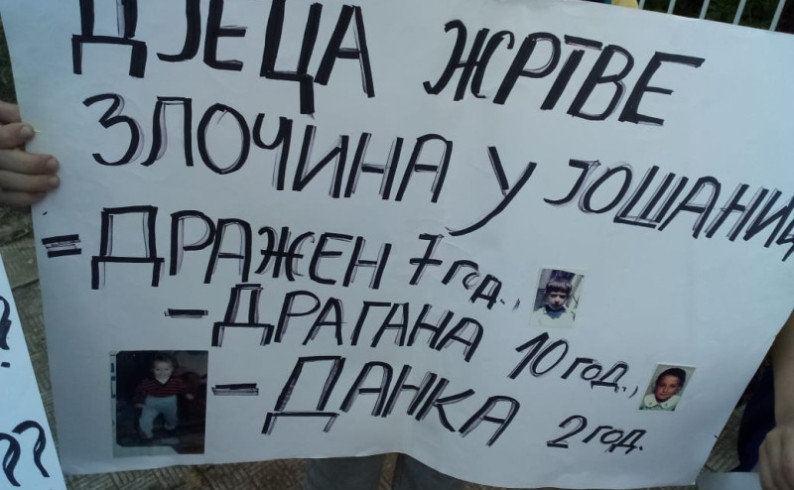 ДЈЕЦА ЖРТВЕ
ЗЛОЧИНА У ЈОШАНИЦ
= ДРАЖЕН 7 год.,
- ДРАГАНА 10 год.,
- ДАНКА 2 год.
?
??